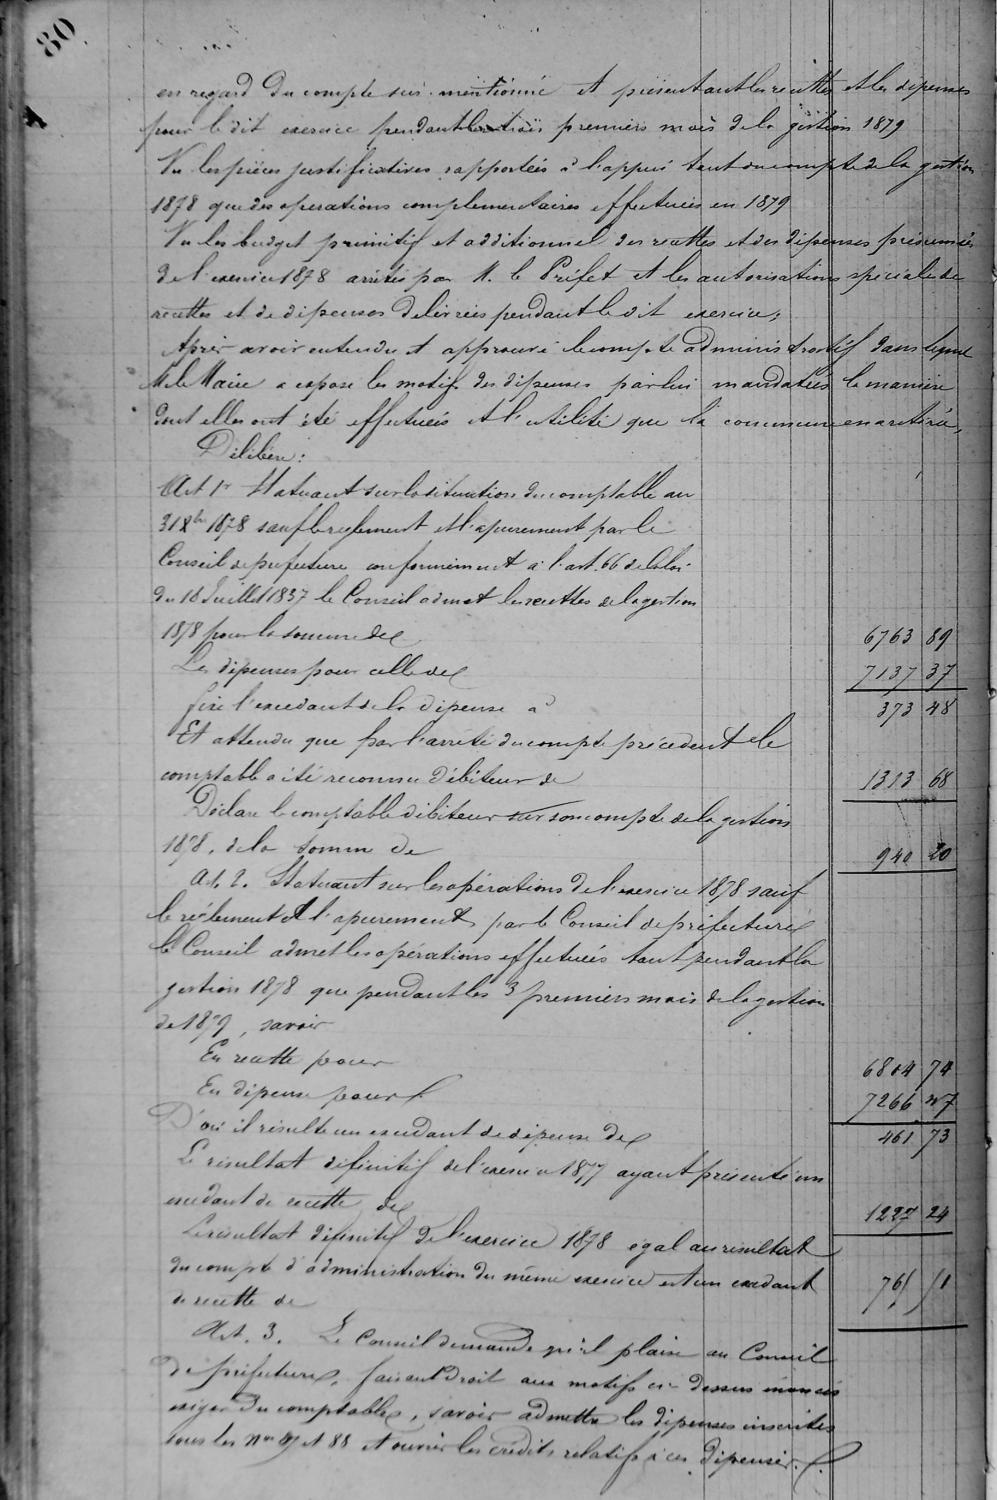 80.
en regard du compte sus-mentionné et présentant les recettes et les dépenses
pour le dit exercice pendant les trois premiers mois de la gestion 1879
Vu les pièces justificatives rapportées à l'appui tant du compte de la gestion
1878 que des operations complementaires effectuées en 1879
Vu les budget primitif et additionnel des recettes et des dépenses présumées
de l'exercice 1878 arrêtés par M. le Préfet et les autorisations spéciales de
recettes et de dépenses délivrées pendant le dit exercice;
Après avoir entendu et approuvé le compte administratif dans lequel
M. le Maire a exposé les motifs des dépenses par lui mandatées la manière
dont elles ont été effectuées et l'utilité que la commune en a retirée,
Délibère:
Art 1r Statuant sur la situation du comptable au
31 Xbre 1878 sauf le reglement et l'apurement par le
Conseil de prefecture conformément à l'art. 66 de la loi
du 18 Juillet 1837 le Conseil admet les recettes de la gestion
1878 pour la somme de 6763 89
Les dépenses pour celle de 7137 37
fixe l'excédant de la dépense à 373 48
Et attendu que par l'arrêté du compte précédent le
comptable a été reconnu débiteur de 1313 68
Déclare le comptable débiteur sur son compte de la gestion
1878, de la somme de 940 20
Art. 2. Statuant sur les opérations de l'exercice 1878 sauf
le réglement et l'apurement par le Conseil de préfecture
le Conseil admet les opérations effectuées tant pendant la
gestion 1878 que pendant les 3 premiers mois de la gestion
de 1879, savoir
En recette pour 6804 74
En dépense pour 7266 47
D'où il résulte un excédant de dépense de 461 73
Le résultat définitif de l'exercice 1877 ayant présenté un
excédant de recette de 1227 24
Le résultat définitif de l'exercice 1878 égal au résultat
du compte d'administration du même exercice est un excédant
de recette de 765 51
Art. 3. Le Conseil demande qu'il plaise au Conseil
de préfecture, faisant droit aux motifs ci-dessus énoncés
exiger du comptable, savoir admettre les dépenses inscrites
sous les nos et 88 et ouvrir les crédits relatifs à ces dépenses.